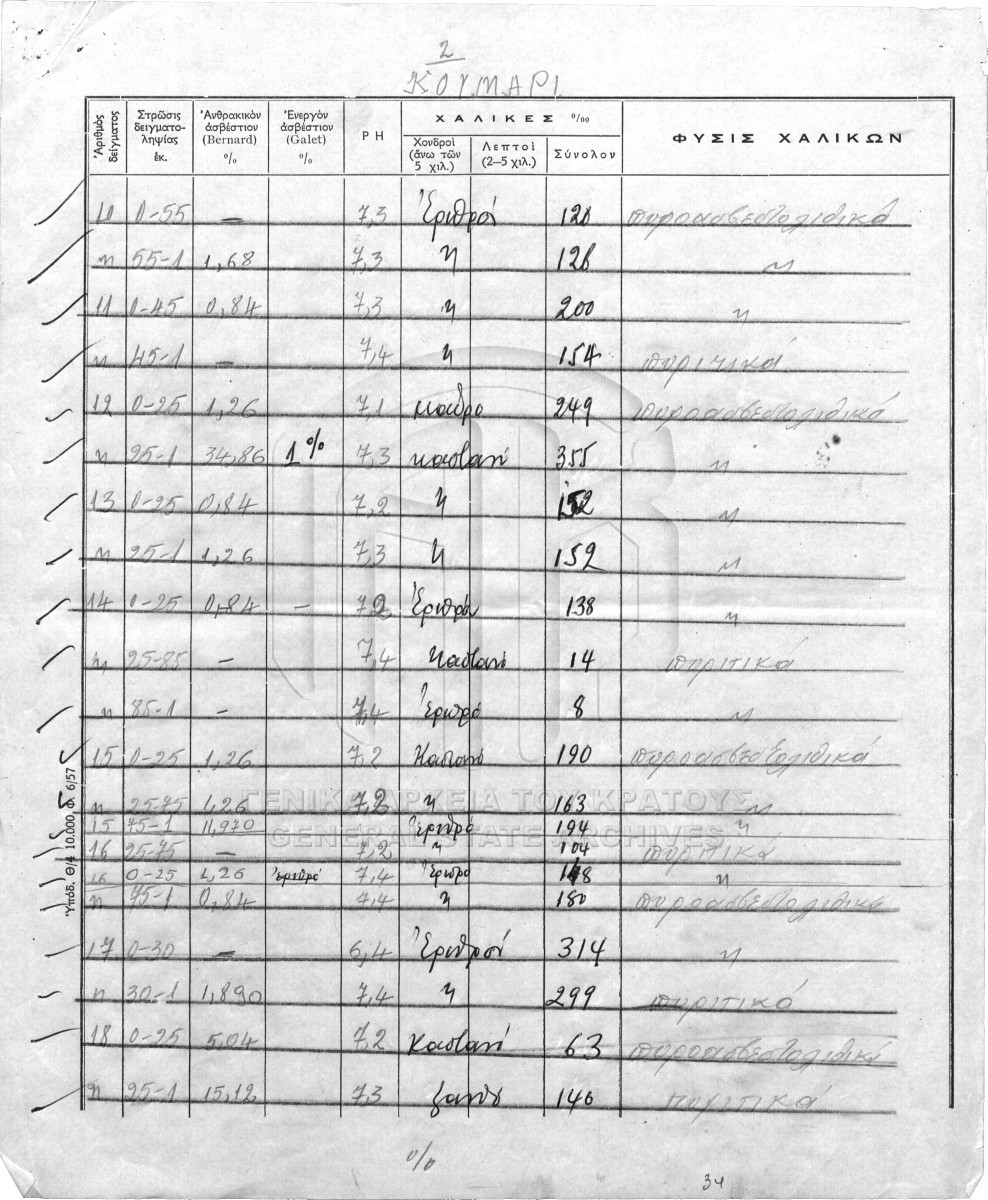 2
ΚΟΥΜΑΡΙ
Ἀριθμὸς δείγματος Στρῶσις δειγματοληψίας ἐκ. Ἀνθρακικὸν ἀσβέστιον (Bernard) % Ἐνεργὸν ἀσβέστιον (Galet) % PH ΧΑΛΙΚΕΣ ‰ Χονδροὶ (ἄνω τῶν 5 χιλ.) Λεπτοὶ (2—5 χιλ.) Σύνολον ΦΥΣΙΣ ΧΑΛΙΚΩΝ
10 0-55 — 7,3 Ἐρυθροί 128 πυροασβεστολιθικά
" 55-1 1,68 7,3 " 128 "
11 0-45 0,84 7,3 " 200 "
" 45-1 — 7,4 " 154 πυριτικά
12 0-25 1,26 7,1 μαύρο 249 πυροασβεστολιθικά
" 25-1 34,86 1% 7,3 καστανή 355 "
13 0-25 0,84 7,2 " 152 "
" 25-1 1,26 7,3 " 152 "
14 0-25 0,84 — 7,2 Ἐρυθρά 138 "
" 25-85 — 7,4 Καστανό 14 πυριτικά
" 85-1 — 7,4 Ἐρυθρό 8 "
15 0-25 1,26 7,2 Καστανό 190 πυροασβεστολιθικά
" 25-75 1,26 7,2 " 163 "
15 75-1 11,970 Ἐρυθρό 194 "
16 25-75 — 7,2 " 104 πυριτικά
16 0-25 1,26 7,4 Ἐρυθρο "
" 75-1 0,84 7,4 " 180 πυροασβεστολιθικά
17 0-30 — 6,4 Ἐρυθροί 314 "
" 30-1 1,890 7,4 " 299 πυριτικά
18 0-25 5,04 7,2 Καστανή 63 πυροασβεστολιθικά
" 25-1 15,12 7,3 ξανθό 146 πυριτικά
Ὑπόδ. Θ/4 10.000, Φ. 6/57
ΓΕΝΙΚΑ ΑΡΧΕΙΑ ΤΟΥ ΚΡΑΤΟΥΣ
GENERAL STATE ARCHIVES
%
34